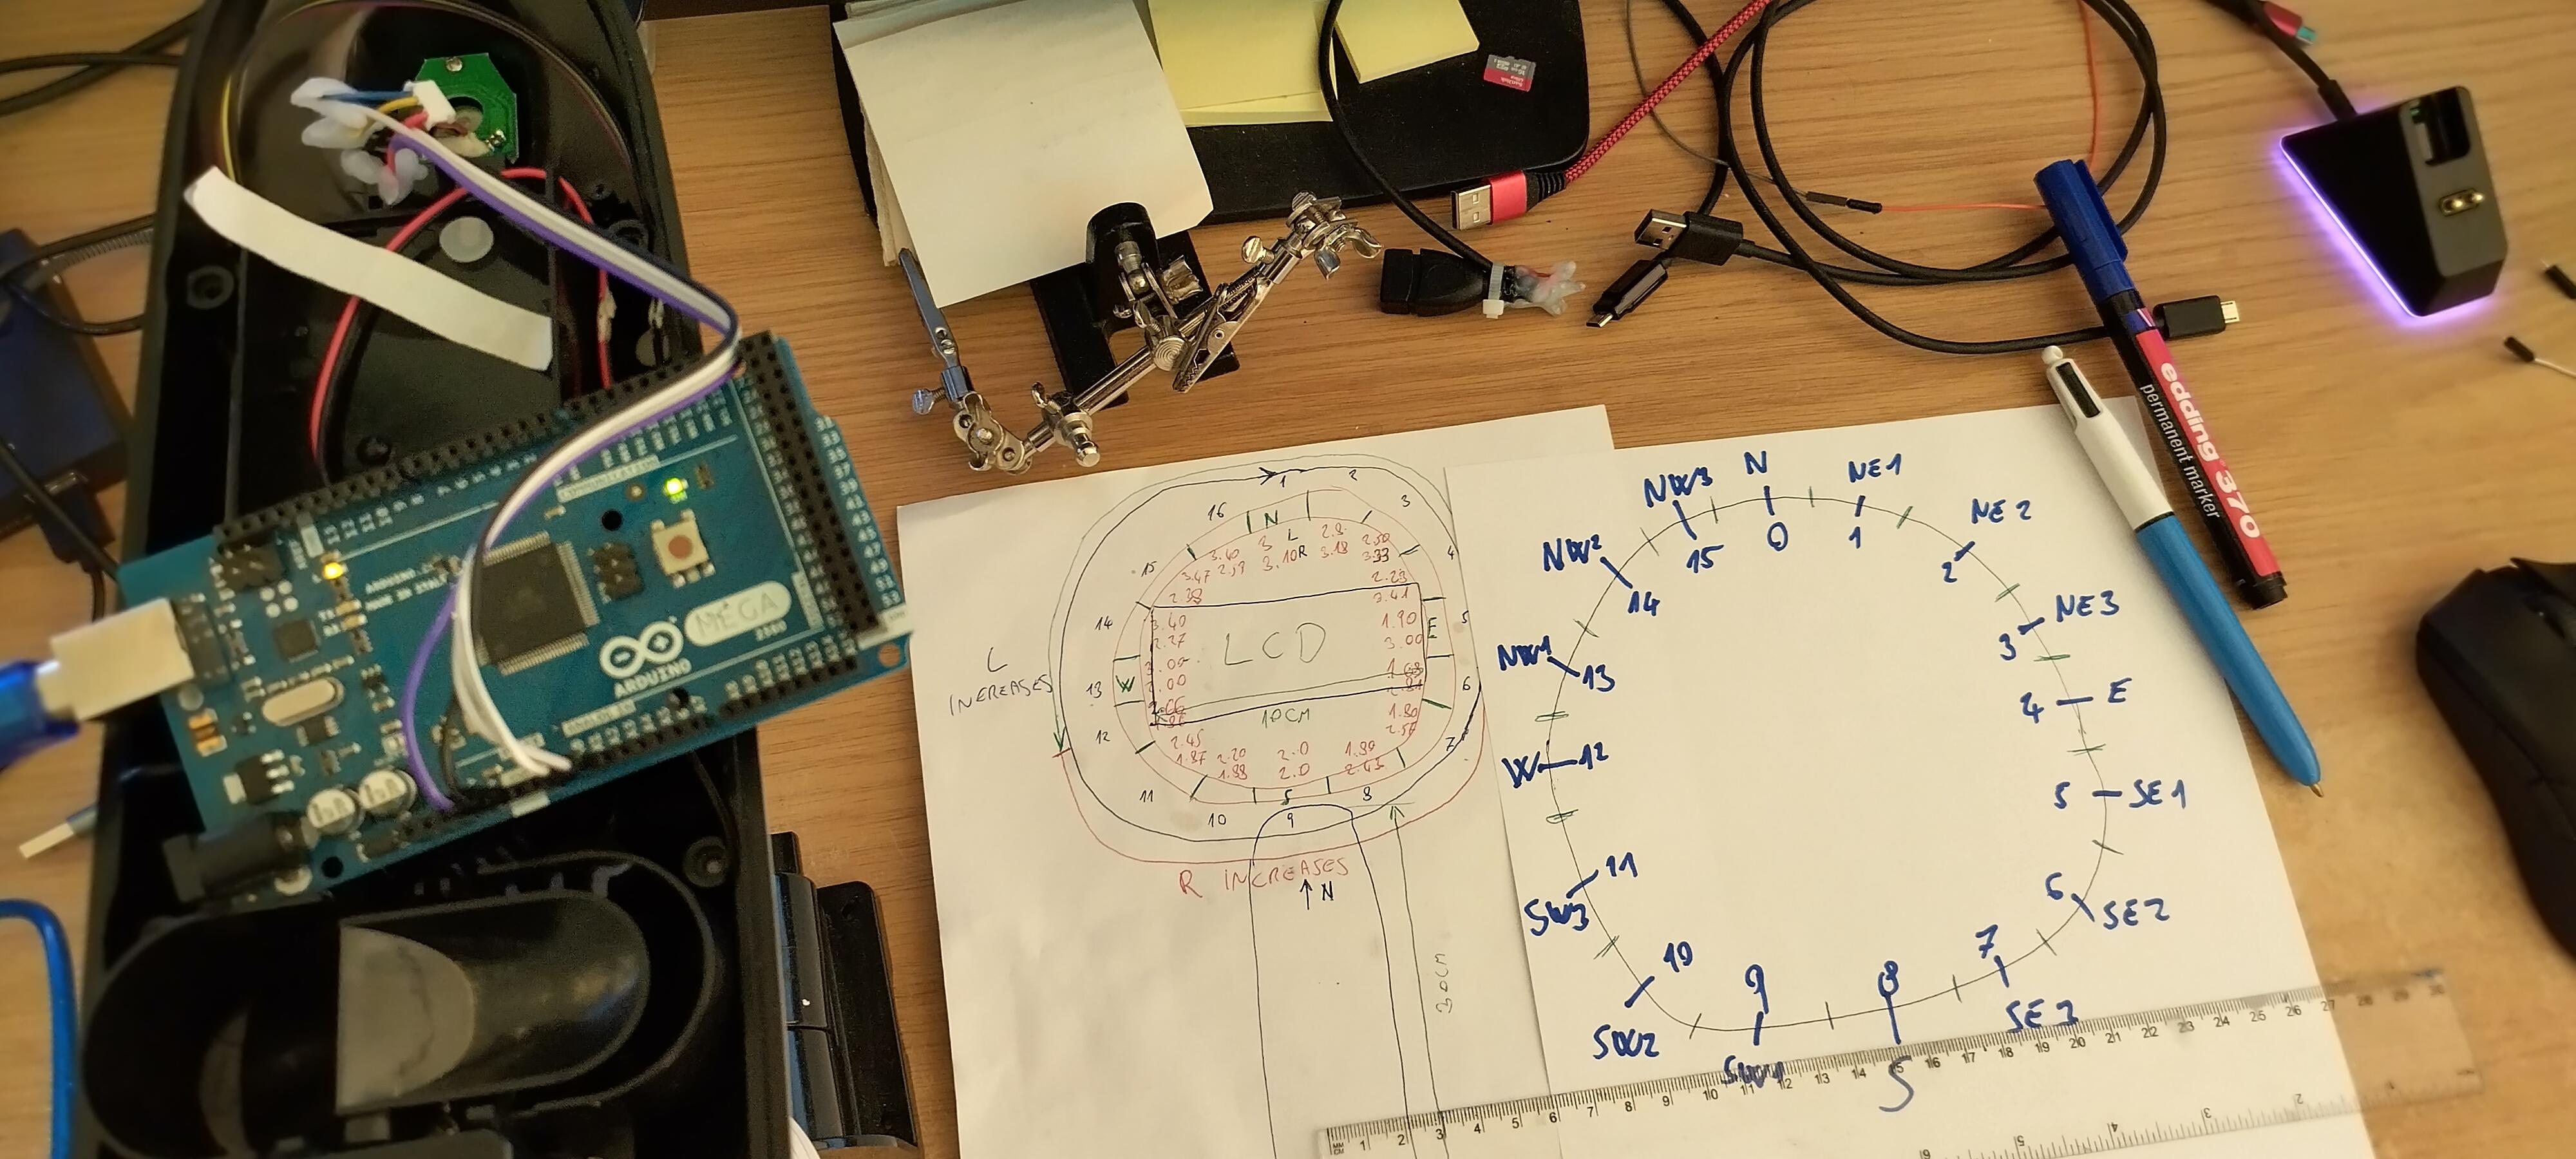 ARDUINO
MEGA
2560
MADE IN ITALY
L
INEREASES
16
1
2
15
N
3
14
4
13
W
E
5
12
6
11
7
10
S
8
9
3.40
3
L
2.8
2.50
3.47
2.38
3.10R
3.18
3.33
2.23
3.41
3.40
2.27
1.90
3.00
LCD
10CM
1.80
2.45
1.87
2.20
1.88
2.0
2.0
1.90
2.45
R INCREASES
↑ N
30CM
N
0
NE1
1
NE2
2
NE3
3
E
4
SE1
5
SE2
6
SE3
7
S
8
SW1
9
SW2
10
SW3
11
W
12
NW1
13
NW2
14
NW3
15
edding 370
permanent marker
MM
CM
1 2 3 4 5 6 7 8 9 10 11 12 13 14 15 16 17 18 19 20 21 22 23 24 25 26 27 28